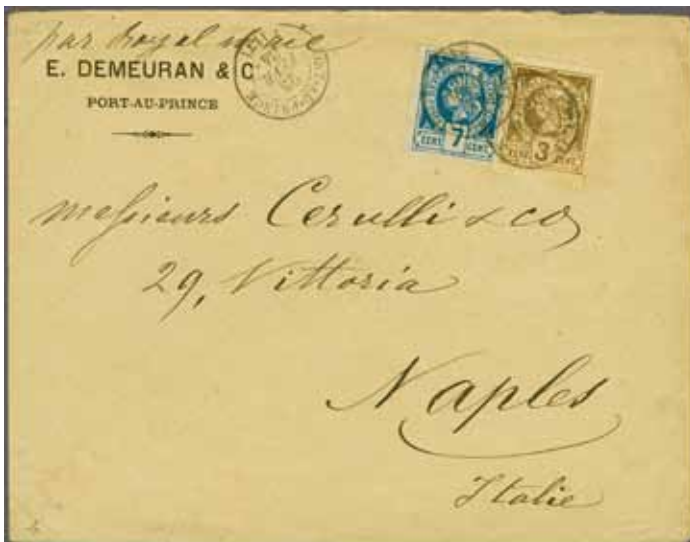 par Royal Mail
E. DEMEURAN & C
PORT-AU-PRINCE
CENT 7 CENT
CENT 3 CENT
messieurs Cerulli & Co
29, Vittoria
Naples
Italie